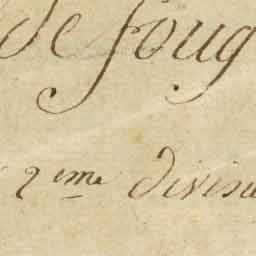 de foug
2eme divisi